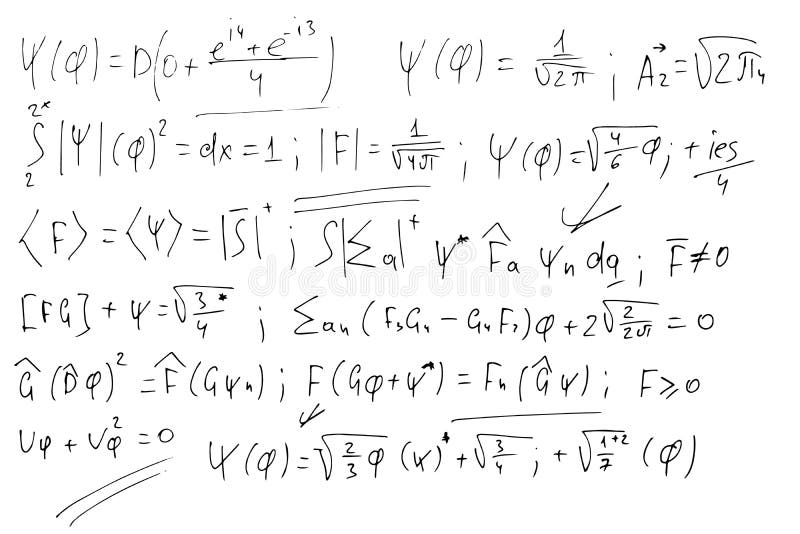 Ψ(φ)=D(0+(e^i4+e^-i3)/4) Ψ(φ)=1/√2π ; A₂→=√2π₄
∫₂^2* |Ψ|(φ)²=dx=1; |F|=1/√4π ; Ψ(φ)=√4/6 φ; +ies/4
⟨F⟩=⟨Ψ⟩=|S̅|⁺ ; S|Σa|⁺ Ψ* F̂a Ψn dq ; F̅≠0
[FG]+Ψ=√3*/4 ; Σan (F₃G₄-G₄F₂)φ+2√2/2π=0
Ĝ(D̂φ)²=F̂(GΨn); F(Gφ+Ψ→)=Fn(ĜΨ); F⩾0
Uφ+Uφ²=0 Ψ(φ)=√2/3 φ (x)*+√3/4 ; +√(1+2)/7 (φ)
dreamstime